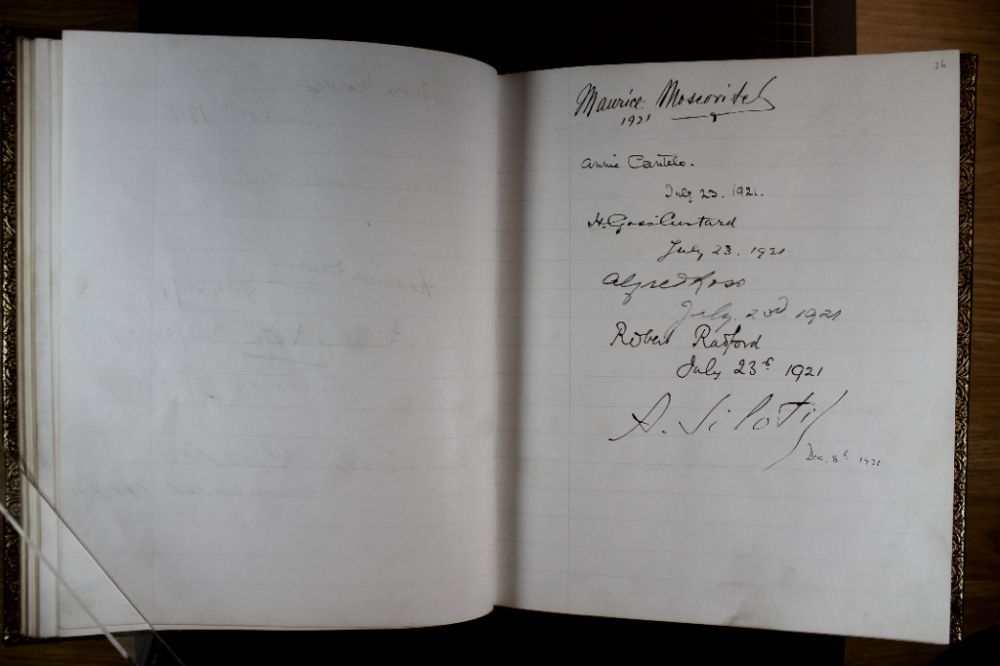 26
Maurice Moscovitch
1921
Annie Cantelo.
July 23. 1921.
H. Goss Custard
July 23. 1921
Alfred Ross
July. 23rd. 1921
Robert Radford
July 23rd 1921
A. Siloti
Dec. 8th 1921